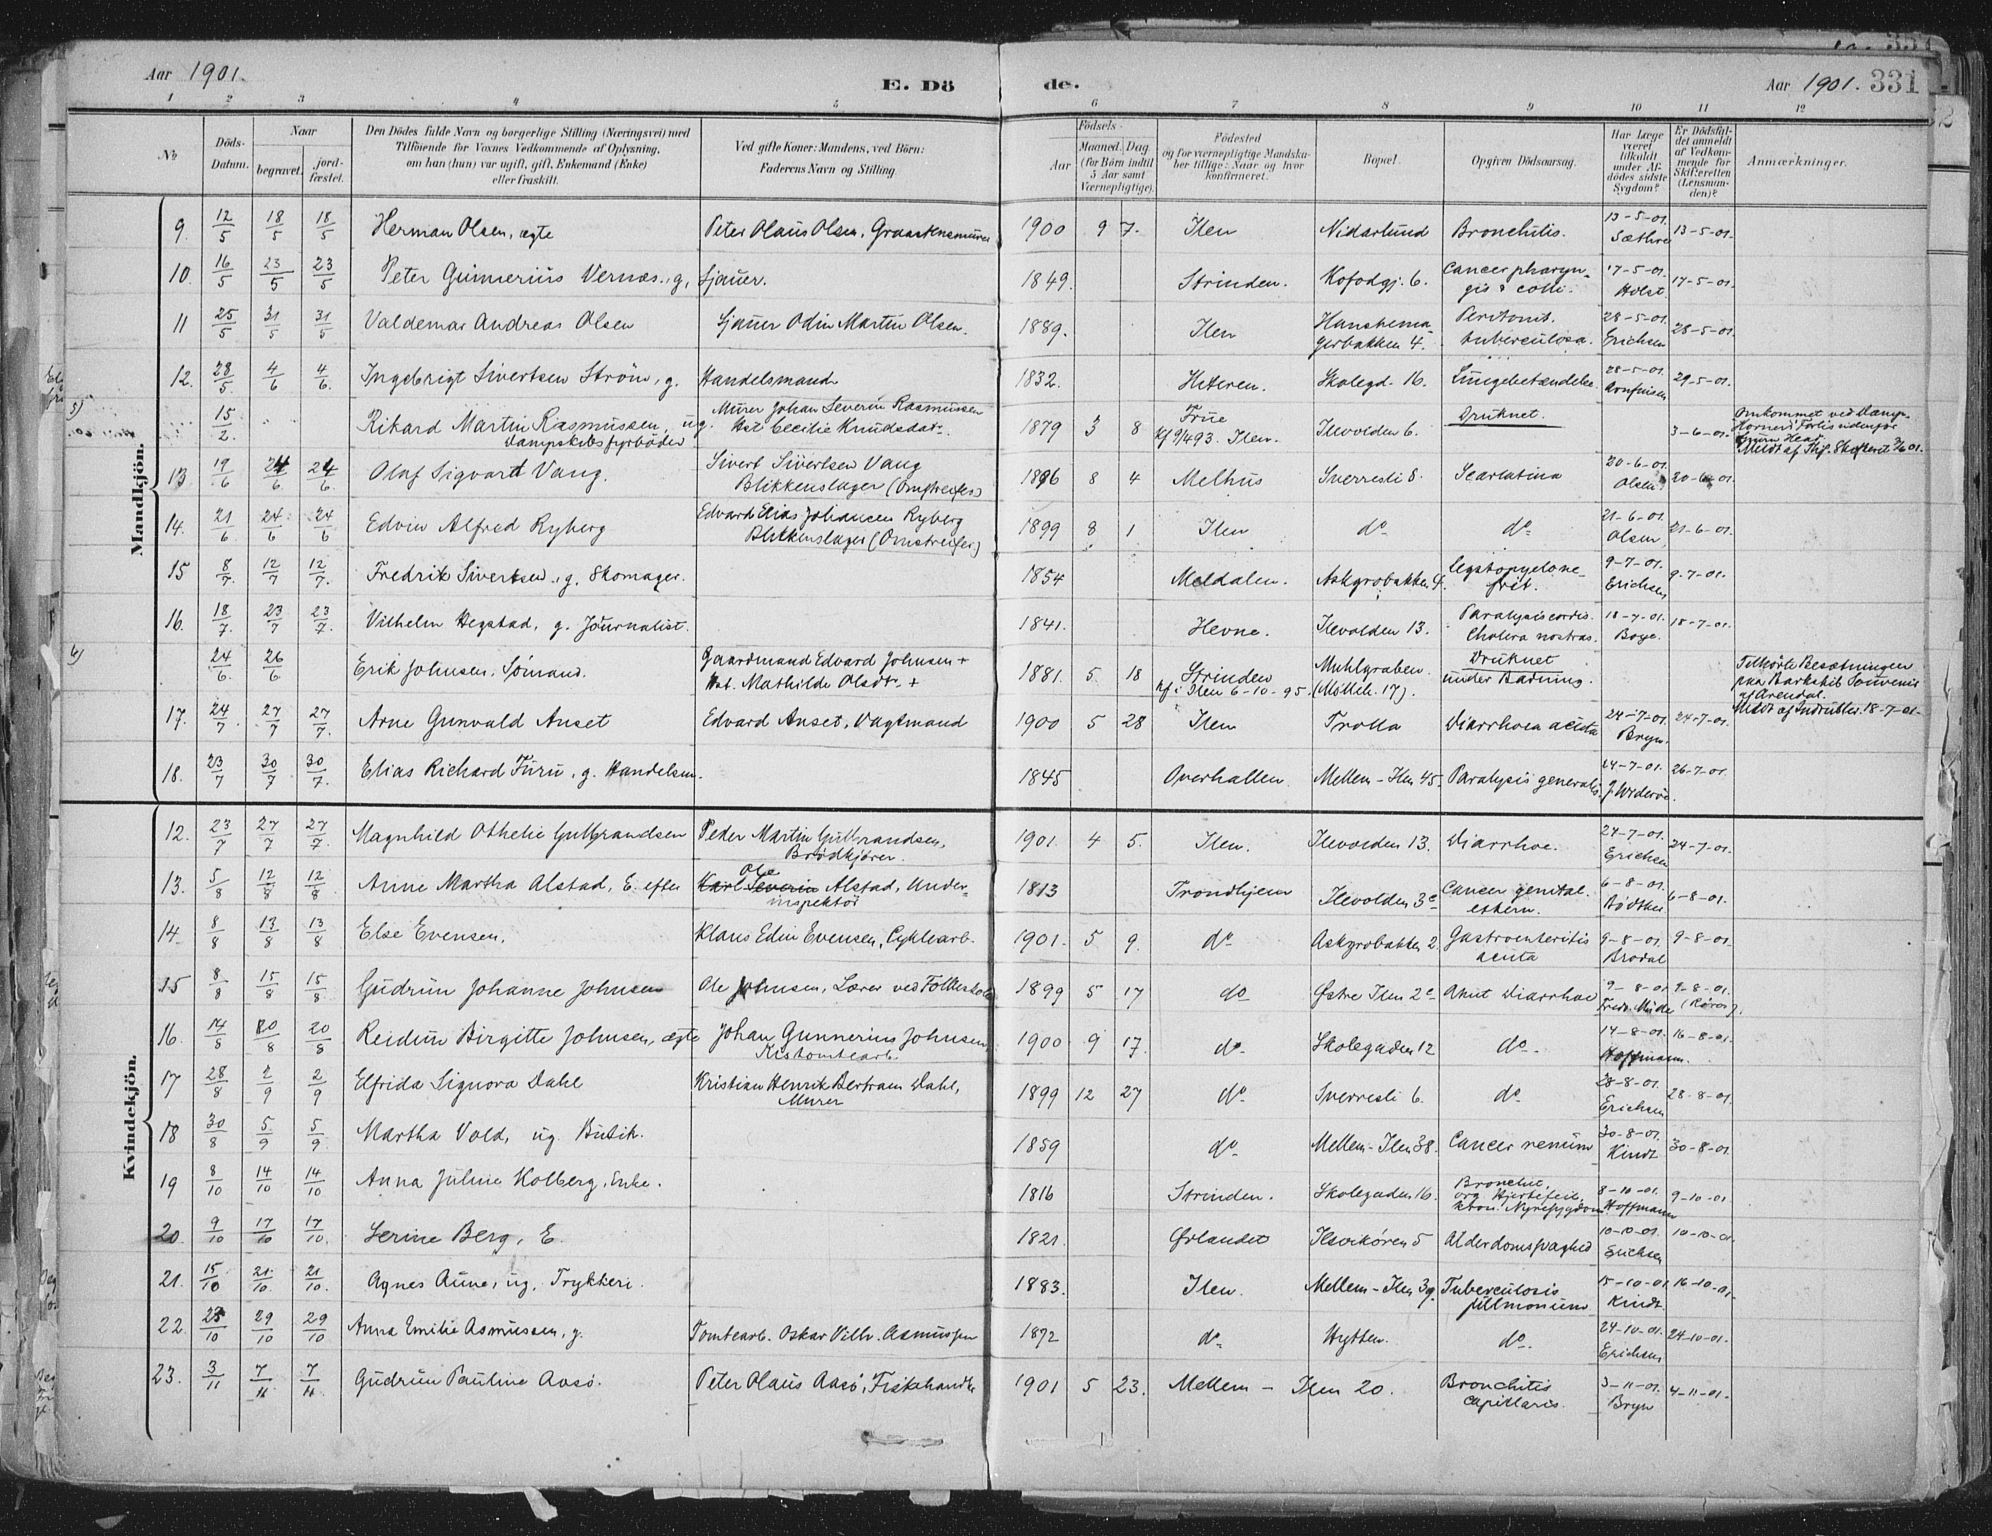 Aar 1901.
E. Dö
de.
Aar 1901. 331
1 2 3 4 5 6 7 8 9 10 11 12
No
Döds-
Datum.
Naar
begravet.
jord-
fæstet.
Den Dödes fulde Navn og borgerlige Stilling (Næringsvei) med
Tilföiende for Voxnes Vedkommende af Oplysning,
om han (hun) var ugift, gift, Enkemand (Enke)
eller fraskilt.
Ved gifte Koner: Mandens, ved Börn:
Faderens Navn og Stilling.
Födsels-
Aar
Maaned. Dag
(for Börn indtil
5 Aar samt
Værnepligtige).
Födested
og for værnepligtige Mandska-
ber tillige: Naar og hvor
konfirmeret.
Bopæl.
Opgiven Dödsaarsag.
Har Læge
været
tilkaldt
under Af-
dödes sidste
Sygdom?
Er Dödsfal-
det anmeldt
af Vedkom-
mende for
Skifteretten
(Lensman-
den)?
Anmærkninger.
Mandkjön.
9. 12/5 18/5 18/5 Herman Olsen, ægte Peter Olaus Olsen, 1900 9 7. Ilen Nidarlund Bronchitis. 13-5-01. Sæthre 13-5-01.
10. 16/5 23/5 23/5 Peter Gunnerius Vernæs, g, Sjauer. 1849. Strinden. Kofodgj. 6. Cancer pharyn-
gis & colli. 17-5-01. Holst 17-5-01.
11 25/5 31/5 31/5 Valdemar Andreas Olsen Sjauer Odin Martin Olsen. 1889. Ilen Hanskema-
gerbakken 4. Peritonit.
tuberculosa. 28-5-01. Erichsen 28-5-01.
12. 28/5. 4/6 4/6 Ingebrigt Sivertsen Ström, g. Handelsmand 1832. Hiteren. Skolegd. 16. Lungebetændelse. 28-5-01. 29-5-01.
5) 15/2. Rikard Martin Rasmussen, ug.
Dampskibsfyrböder Murer Johan Severin Rasmussen
Hst. Cecilie Knudsdatr. 1879 3 8 Frue
Kf 9/4 93. Ilen. Ilevolden 6. Druknet. 3-6-01. Omkommet ved Damp.
13 19/6 24/6 24/6 Olaf Sigvart Vang. Sivert Sivertsen Vang
Blikkenslager (Omstreifer) 1896 8 4 Melhus Sverresli 8. Scarlatina 20-6-01. Olsen 20-6-01.
14. 21/6 24/6 24/6 Edvin Alfred Ryberg Edvard Elias Johansen Ryberg
Blikkenslager (Omstreifer) 1899 8 1 Ilen do do 21-6-01. Olsen 21-6-01.
15 8/7 12/7 12/7. Fredrik Sivertsen, g. Skomager. 1854 Meldalen. Askgrobakken 4. 9-7-01. Erichsen 9-7-01.
16. 18/7. 23/7 23/7. Vilhelm Hegstad, g. Journalist. 1841. Hevne. Ilevolden 13. Paralysis cordis.
Cholera nostras. 18-7-01. Boye. 18-7-01.
6) 24/6. 26/6 Erik Johnsen, Sömand. Gaardmand Edvard Johnsen +
Hst. Mathilde Olsdtr. + 1881. 5. 18 Strinden
Kf i Ilen 6-10-95. Muhlgraben.
(Mölleb. 17). Druknet
under Badning. Tilhörte Besætningen
paa Barkskib Souvenir
af Arendal.
17. 24/7. 27/7 27/7. Arne Gunvald Anset Edvard Anset, Vagtmand 1900 5 28 Ilen Trolla Diarrhoea acuta 24-7-01. Bryn. 24-7-01.
18. 23/7 30/7 30/7. Elias Richard Furu, g. Handelsm. 1845 Overhallen. Mellem-Ilen 45. Paralysis generalis. 24-7-01. 26-7-01.
Kvindekjön.
12. 23/7 27/7 27/7. Magnhild Othelie Gulbrandsen Peder Martin Gulbrandsen,
Brödkjörer. 1901. 4 5. Ilen. Ilevolden 13. Diarrhoe. 24-7-01. Erichsen 24-7-01.
13. 5/8 12/8 12/8. Anne Martha Alstad, E. efter Ole
Karl Severin Alstad, Under-
inspektör 1813 Trondhjem Ilevolden 3c Cancer genital.
extern. 6-8-01. Bödtker 6-8-01.
14. 8/8 13/8 13/8 Else Evensen. Klaus Edin Evensen, Cyklearb. 1901. 5 9. do Askgrobakken 2. Gastroenteritis
acuta 9-8-01. Brodal 9-8-01.
15 8/8 15/8 15/8. Gudrun Johanne Johnsen Ole Johnsen, Lærer ved Folkeskole 1899 5 17 do Östre Ilen 2c Akut Diarrhoe 9-8-01. 9-8-01. (Röros).
16. 14/8 20/8 20/8 Reidun Birgitte Johnsen, ægte Johan Gunnerius Johnsen, 1900 9 17. do. Skolegaden 12 do. 14-8-01. Hoffmann. 16-8-01.
17 28/8 2/9 2/9 Elfrida Signora Dahl Kristian Henrik Bertram Dahl,
Murer 1899 12 27 do. Sverresli 6. do. 28-8-01. Erichsen 28-8-01.
18 30/8 5/9 5/9. Martha Vold, ug. Butik. 1859 do. Mellem-Ilen 38. Cancer renum 30-8-01. Kindt 30-8-01.
19 8/10 14/10 14/10 Anna Juline Holberg, Enke. 1816 Strinden. Skolegaden 16. Bronchit.
org. Hjertefeil,
kron. Nyresygdom 8-10-01. Hoffmann 9-10-01
20. 9/10 17/10 17/10. Serine Berg, E. 1821. Örlandet Ilsvikören 5 Alderdomssvaghed 10-10-01. Erichsen 10-10-01.
21. 15/10 21/10 21/10. Agnes Aune, ug, Trykkeri. 1883. Ilen. Mellem-Ilen 39. Tuberculosis
pulmonum 15-10-01 Kindt 16-10-01.
22. 23/10 29/10 29/10 Anna Emilie Asmussen, g. Tomtearb. Oskar Vilh. Asmussen 1872 do. Hytten. do. 24-10-01. Erichsen 24-10-01.
23. 3/11 7/11 7/11. Gudrun Pauline Aasö. Peter Olaus Aasö, Fiskehandler 1901 5 23. Mellem - Ilen 20. Bronchitis
capillaris. 3-11-01. Bryn 4-11-01.